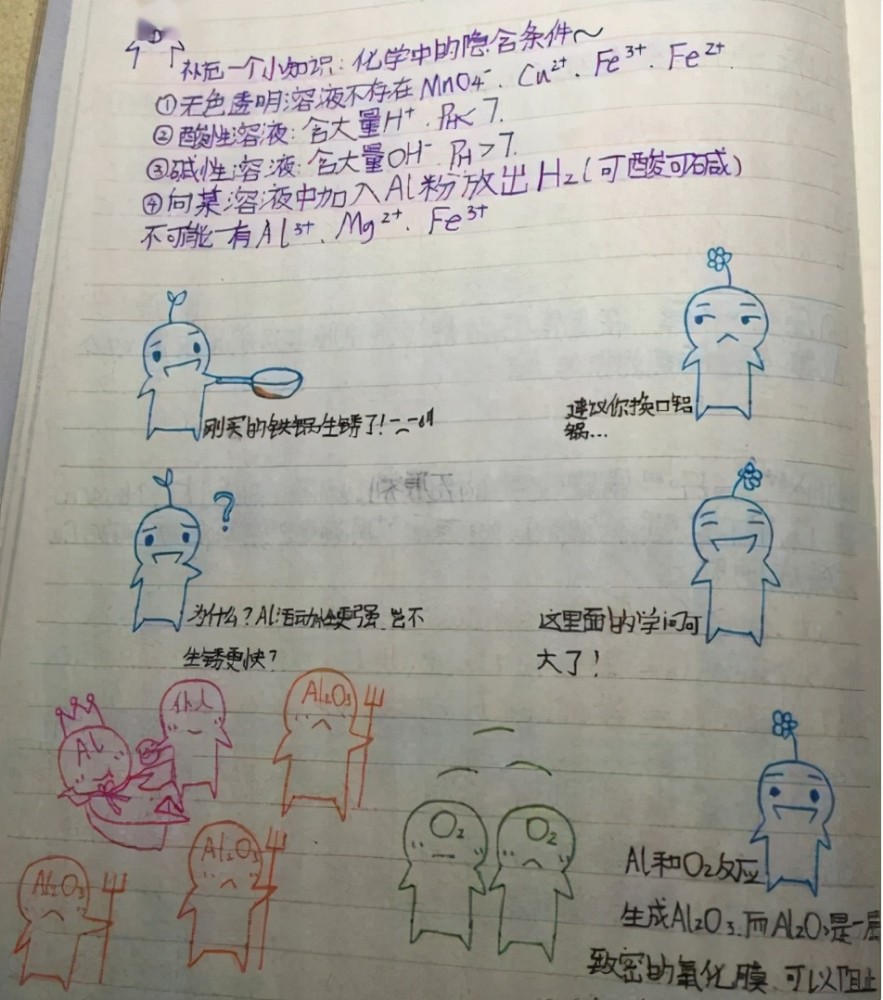 补充一个小知识：化学中的隐含条件～
①无色透明溶液不存在 MnO₄⁻、Cu²⁺、Fe³⁺、Fe²⁺.
②酸性溶液：含大量H⁺、PH<7.
③碱性溶液：含大量OH⁻ PH>7.
④向某溶液中加入Al粉放出H₂(可酸可碱)
不可能有Al³⁺、Mg²⁺、Fe³⁺
刚买的铁锅生锈了!
建议你换口铝
锅...
?
为什么？Al活动性更强 岂不
生锈更快？
这里面的学问可
大了！
Al
仆人
Al₂O₃
Al₂O₃
Al₂O₃
O₂
O₂
Al和O₂反应
生成Al₂O₃,而Al₂O₃是一层
致密的氧化膜,可以阻止